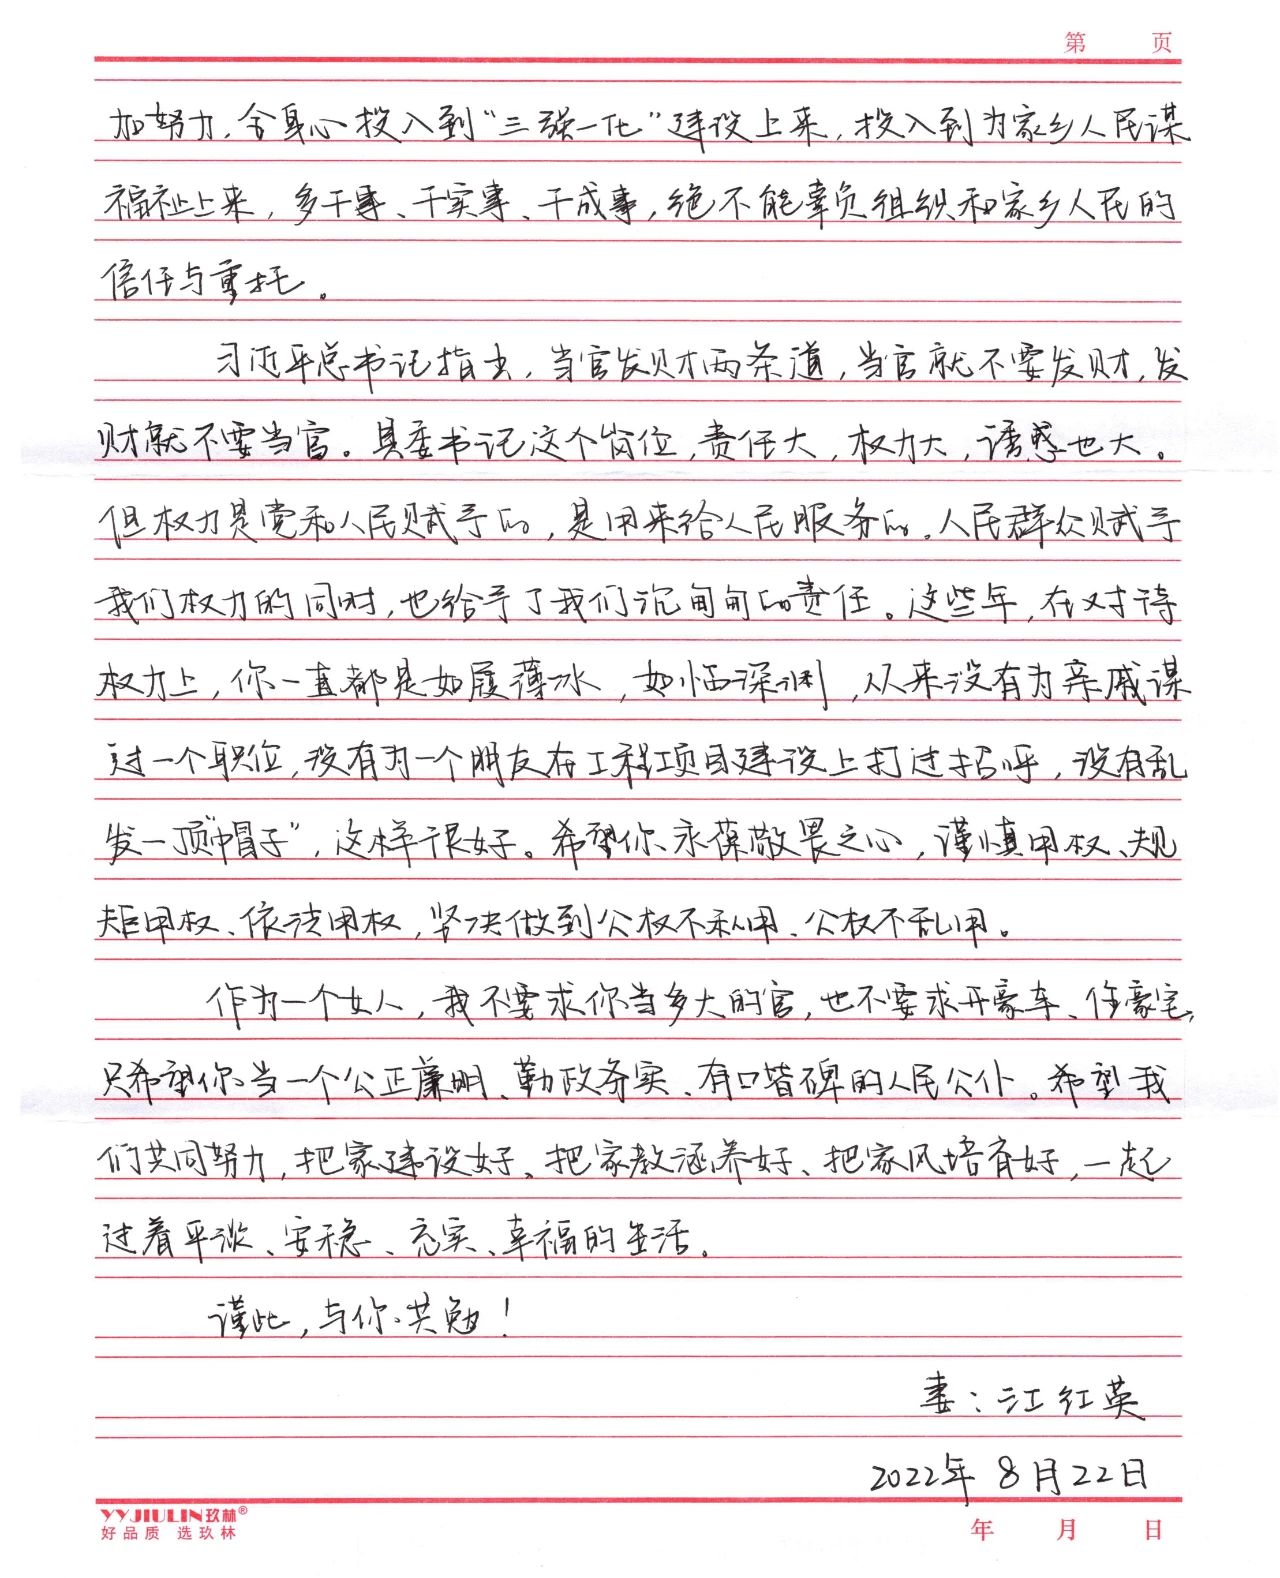 第 页
加努力，全身心投入到“三强一化”建设上来，投入到为家乡人民谋
福祉上来，多干事、干实事、干成事，绝不能辜负组织和家乡人民的
信任与重托。
习近平总书记指出，当官发财两条道，当官就不要发财，发
财就不要当官。县委书记这个岗位，责任大，权力大，诱惑也大。
但权力是党和人民赋予的，是用来给人民服务的。人民群众赋予
我们权力的同时，也给予了我们沉甸甸的责任。这些年，在对待
权力上，你一直都是如履薄冰，如临深渊，从来没有为亲戚谋
过一个职位，没有为一个朋友在工程项目建设上打过招呼，没有乱
发一顶“帽子”，这样很好。希望你永葆敬畏之心，谨慎用权、规
矩用权、依法用权，坚决做到公权不私用、公权不乱用。
作为一个女人，我不要求你当多大的官，也不要求开豪车、住豪宅，
只希望你当一个公正廉明、勤政务实、有口皆碑的人民公仆。希望我
们共同努力，把家建设好、把家教涵养好、把家风培育好，一起
过着平淡、安稳、充实、幸福的生活。
谨此，与你共勉！
妻：江红英
2022年8月22日
YYJIULIN玖林®
好品质 选玖林
年 月 日